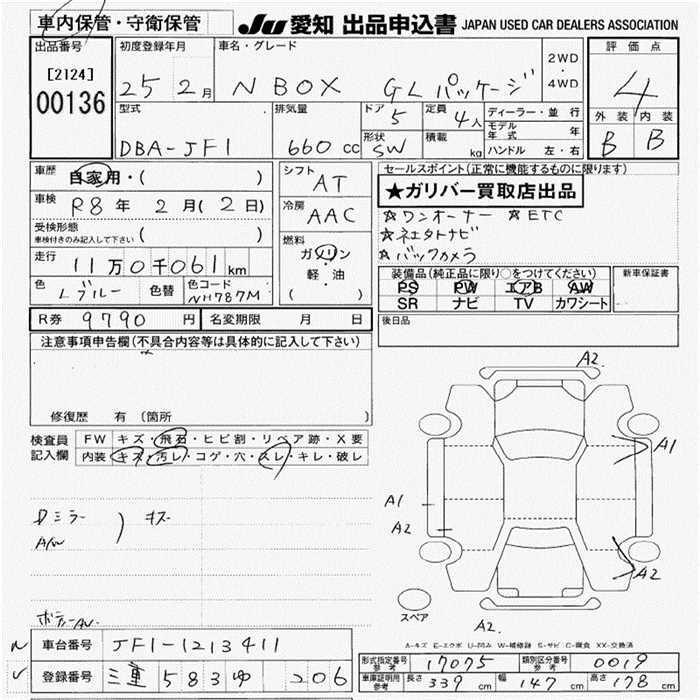 車内保管・守衛保管 JU 愛知 出品申込書 JAPAN USED CAR DEALERS ASSOCIATION
出品番号 [2124] 00136
初度登録年月 25 2月
車名・グレード N BOX GLパッケージ
2WD・4WD
評価点 4
外装 内装
B B
型式 DBA-JF1
排気量 660 cc
ドア 5
形状 SW
定員 4人
積載 kg
ディーラー・並行
モデル年式 年
ハンドル 左・右
車歴 自家用・( )
車検 R8年 2月(2日)
受検形態 車検付きのみ記入して下さい ( )
走行 11万0千061km
色 Lブルー 色替 色コード NH787M
シフト AT
冷房 AAC
燃料 ガソリン・軽・油 ( )
セールスポイント(正常に機能するものに限ります)
★ガリバー買取店出品
☆ワンオーナー ☆ETC
☆ネエタトナビ
☆バックカメラ
装備品(純正品に限り○をつけてください)
PS PW エアB AW
SR ナビ TV カワシート
新車保証書
後日品
R券 9790 円 名変期限 月 日
注意事項申告欄(不具合内容等は具体的に記入して下さい)
修復歴 有 (箇所
検査員記入欄
FW キズ・飛石・ヒビ割・リペア跡・X要
内装 キズ・汚レ・コゲ・穴・スレ・キレ・破レ
Dミラー
A/W
) キズ
A2
A1
A1
A2
A2
スペア
A2.
A-キズ E-エクボ U-凹み W-補修跡 S-サビ C-腐食 XX-交換済
車台番号 JF1-1213411
登録番号 三重 583 ゆ 206
形式指定番号 参考 17075 類別区分番号 参考 0019
車庫証明用 参考 長さ 339 cm 幅 147 cm 高さ 178 cm